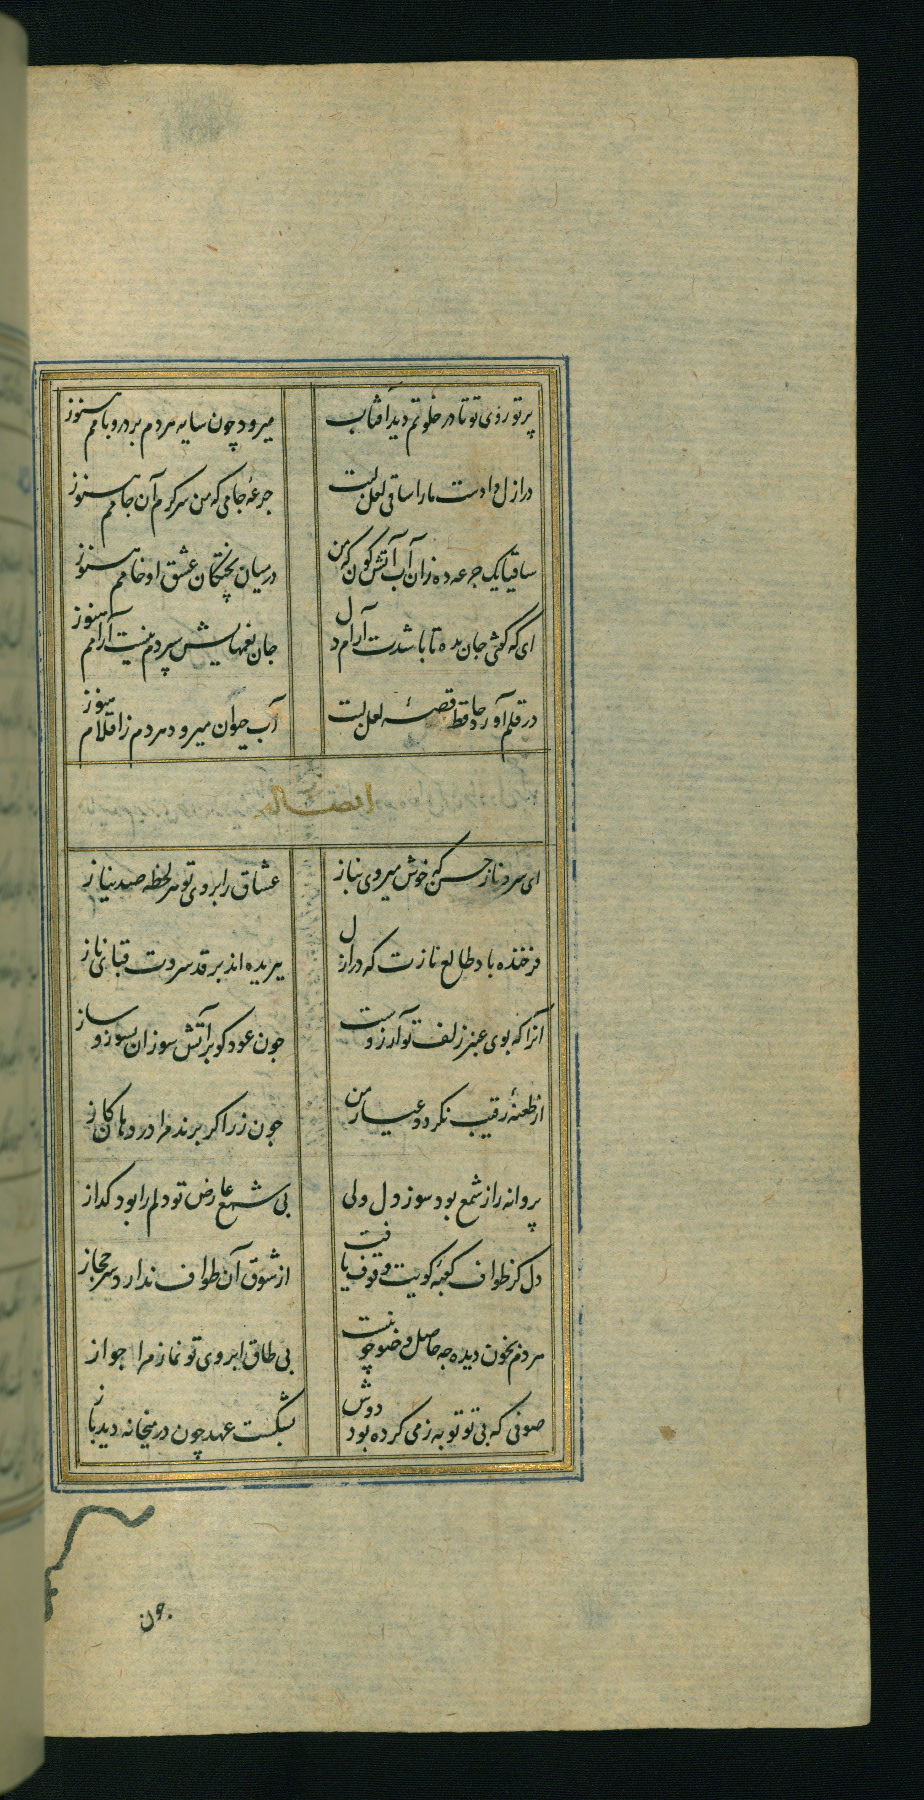 پرتو روی تو تا در خلوتم دید آفتاب
میرود چون سایه هردم بر در و بامم هنوز
در ازل دادست ما را ساقی لعل لبت
جرعهٔ جامی که من سرگرم آن جامم هنوز
ساقیا یک جرعه ده زان آب آتش گون که من
در میان پختکان عشق او خامم هنوز
ای که گفتی جان بده تا باشدت آرام دل
جان بغمهایش سپردم نیست آرامم هنوز
در قلم آورد حافظ قصهٔ لعل لبت
آب حیوان میرود هردم ز اقلامم هنوز
ایضا له
ای سرو ناز حسن که خوش میروی بناز
عشاق را بروی تو هر لحظه صد نیاز
فرخنده باد طالع نازت که در ازل
ببریده اند بر قد سروت قبای ناز
آنرا که بوی عنبر زلف تو آرزوست
چون عود کو بر آتش سوزان بسوز و ساز
از طعنهٔ رقیب نکردد عیار من
چون زر اکر برند مرا در دهان کاز
پروانه را ز شمع بود سوز دل ولی
بی شمع عارض تو دلم را بود کداز
دل کز طواف کعبهٔ کویت وقوف یافت
از شوق آن طواف ندارد سر حجاز
هردم بخون دیده چه حاصل وضو چو نیست
بی طاق ابروی تو نماز مرا جواز
صوفی که بی تو توبه ز می کرده بود دوش
بشکست عهد چون در میخانه دید باز
چون